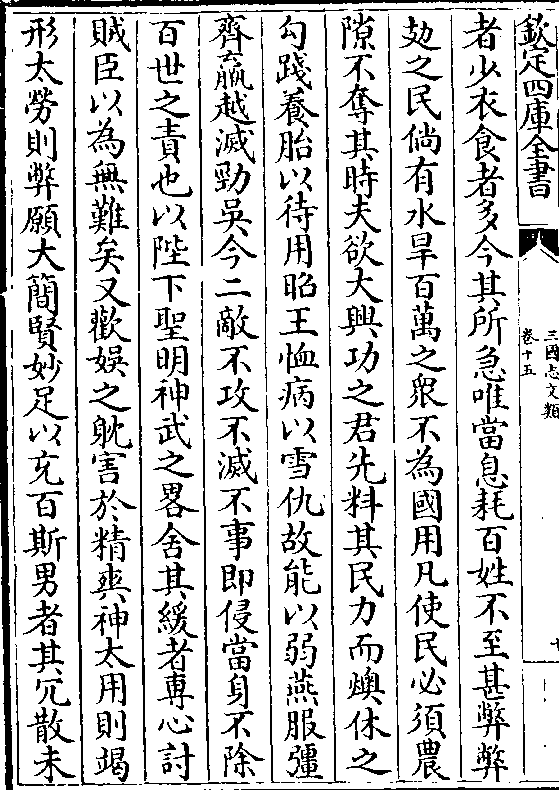 欽定四庫全書
三國志文類
卷十五
者少衣食者多今其所急唯當息耗百姓不至甚弊弊
攰之民倘有水旱百萬之衆不為國用凡使民必須農
隙不奪其時夫欲大興功之君先料其民力而燠休之
勾踐養胎以待用昭王恤病以雪仇故能以弱燕服彊
齊羸越滅勁吳今二敵不攻不滅不事即侵當身不除
百世之責也以陛下聖明神武之畧舍其緩者專心討
賊臣以為無難矣又歡娛之躭害於精爽神太用則竭
形太勞則弊願大簡賢妙足以充百斯男者其冗散未